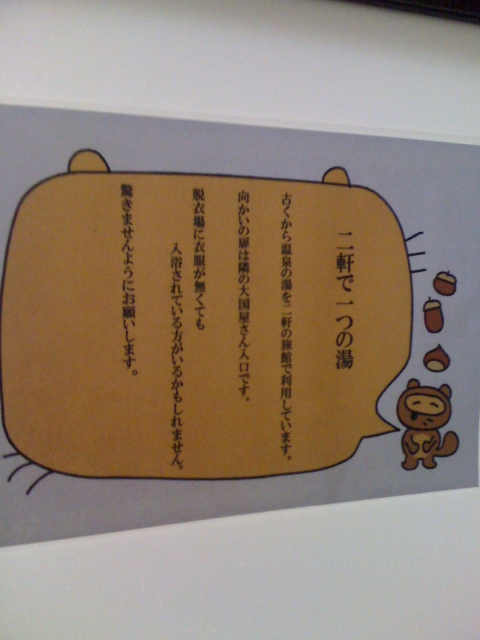 二軒で一つの湯
古くから温泉の湯を二軒の旅館で利用しています。
向かいの扉は隣の大国屋さん入口です。
脱衣場に衣服が無くても
入浴されている方がいるかもしれません。
驚きませんようにお願いします。